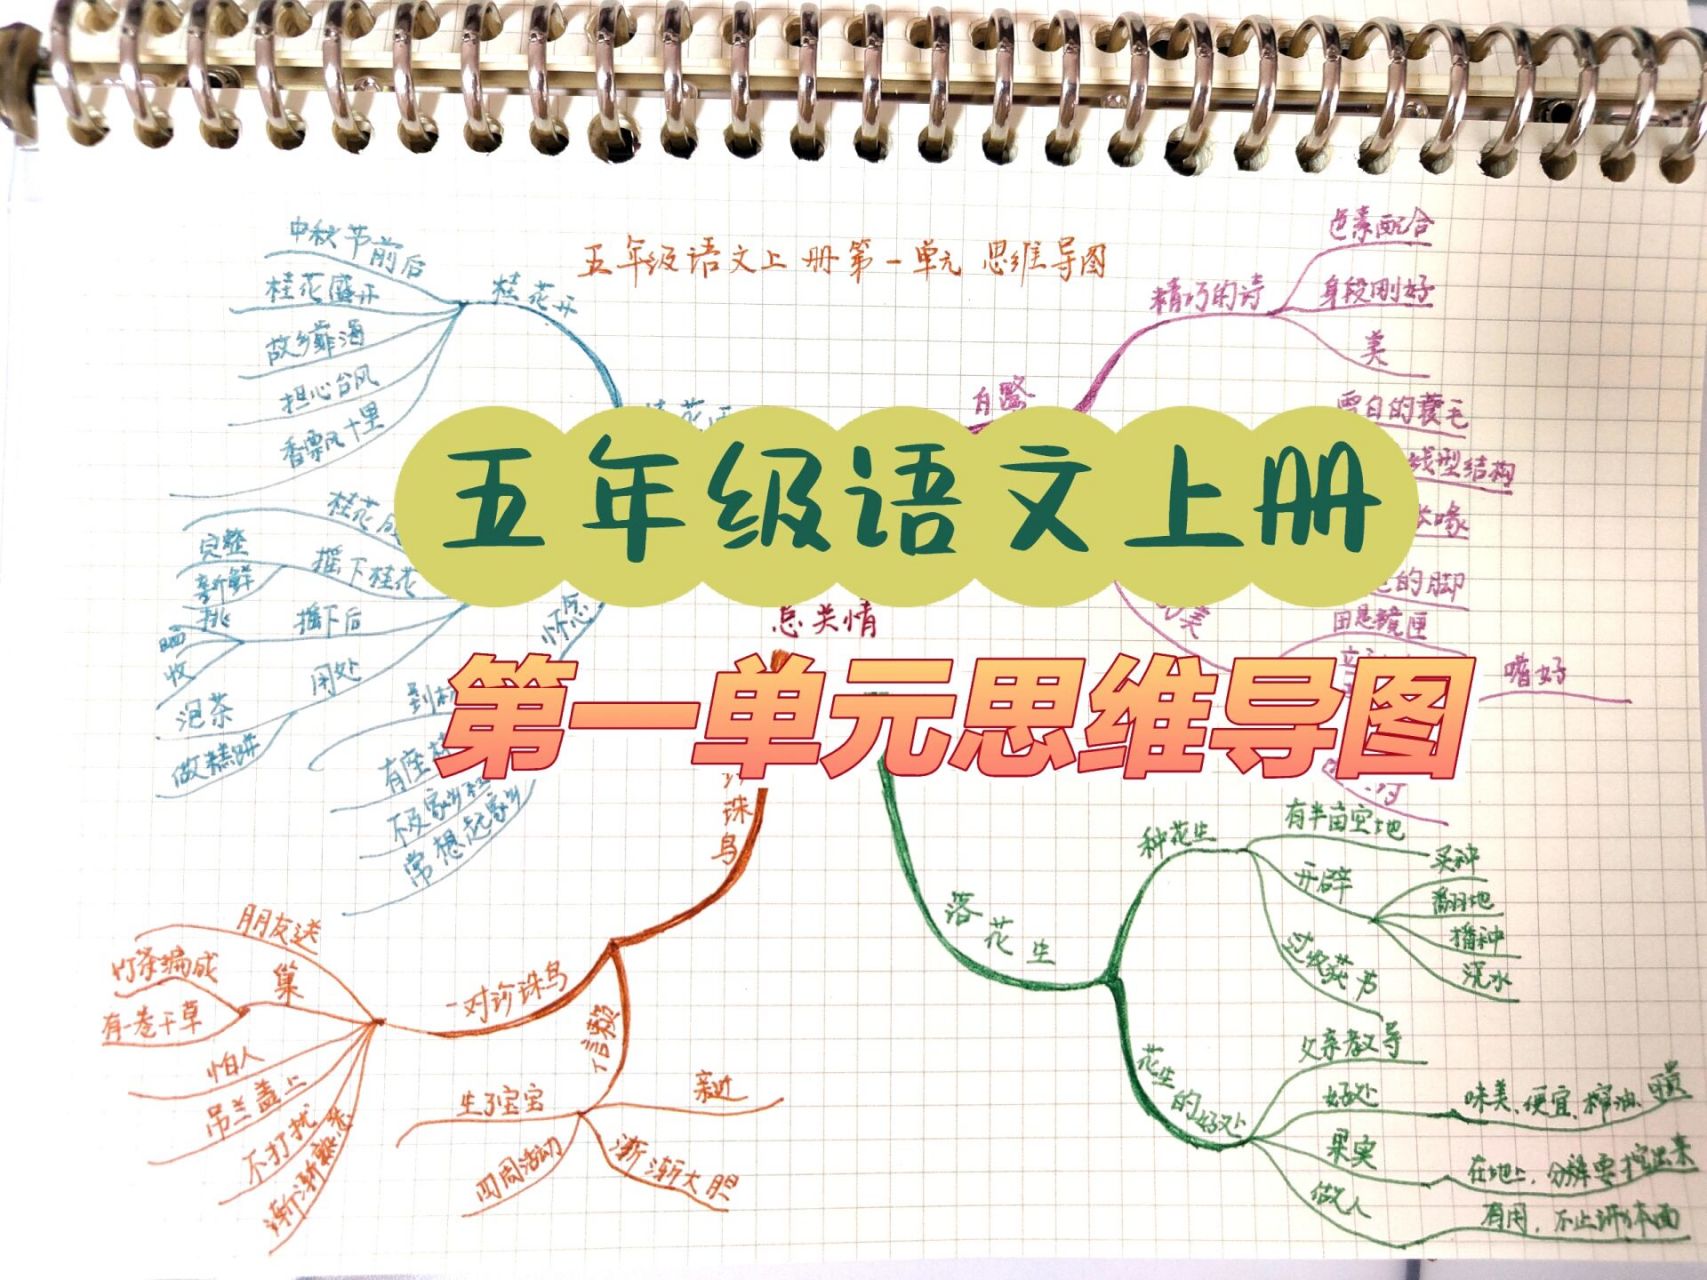 五年级语文上册第一单元 思维导图
五年级语文上册
第一单元思维导图
中秋节前后
桂花盛开
故乡靠海
担心台风
香飘十里
桂花开
摇下桂花
完整
新鲜
摇下后
挑
晒
收
用处
泡茶
做糕饼
怀念
常想起家乡
精巧的诗
色素配合
身段刚好
美
雪白的蓑毛
线型结构
的脚
田是镜匣
嗜好
珠鸟
一对珍珠鸟
朋友送
巢
竹条编成
有一卷干草
怕人
吊兰盖上
不打扰
渐渐熟悉
信赖
生了宝宝
亲近
四周活动
渐渐大胆
落花生
种花生
有半亩空地
开辟
买种
翻地
播种
浇水
过收获节
花生的好处
父亲教导
好处
味美、便宜、榨油、可贵
果实
做人